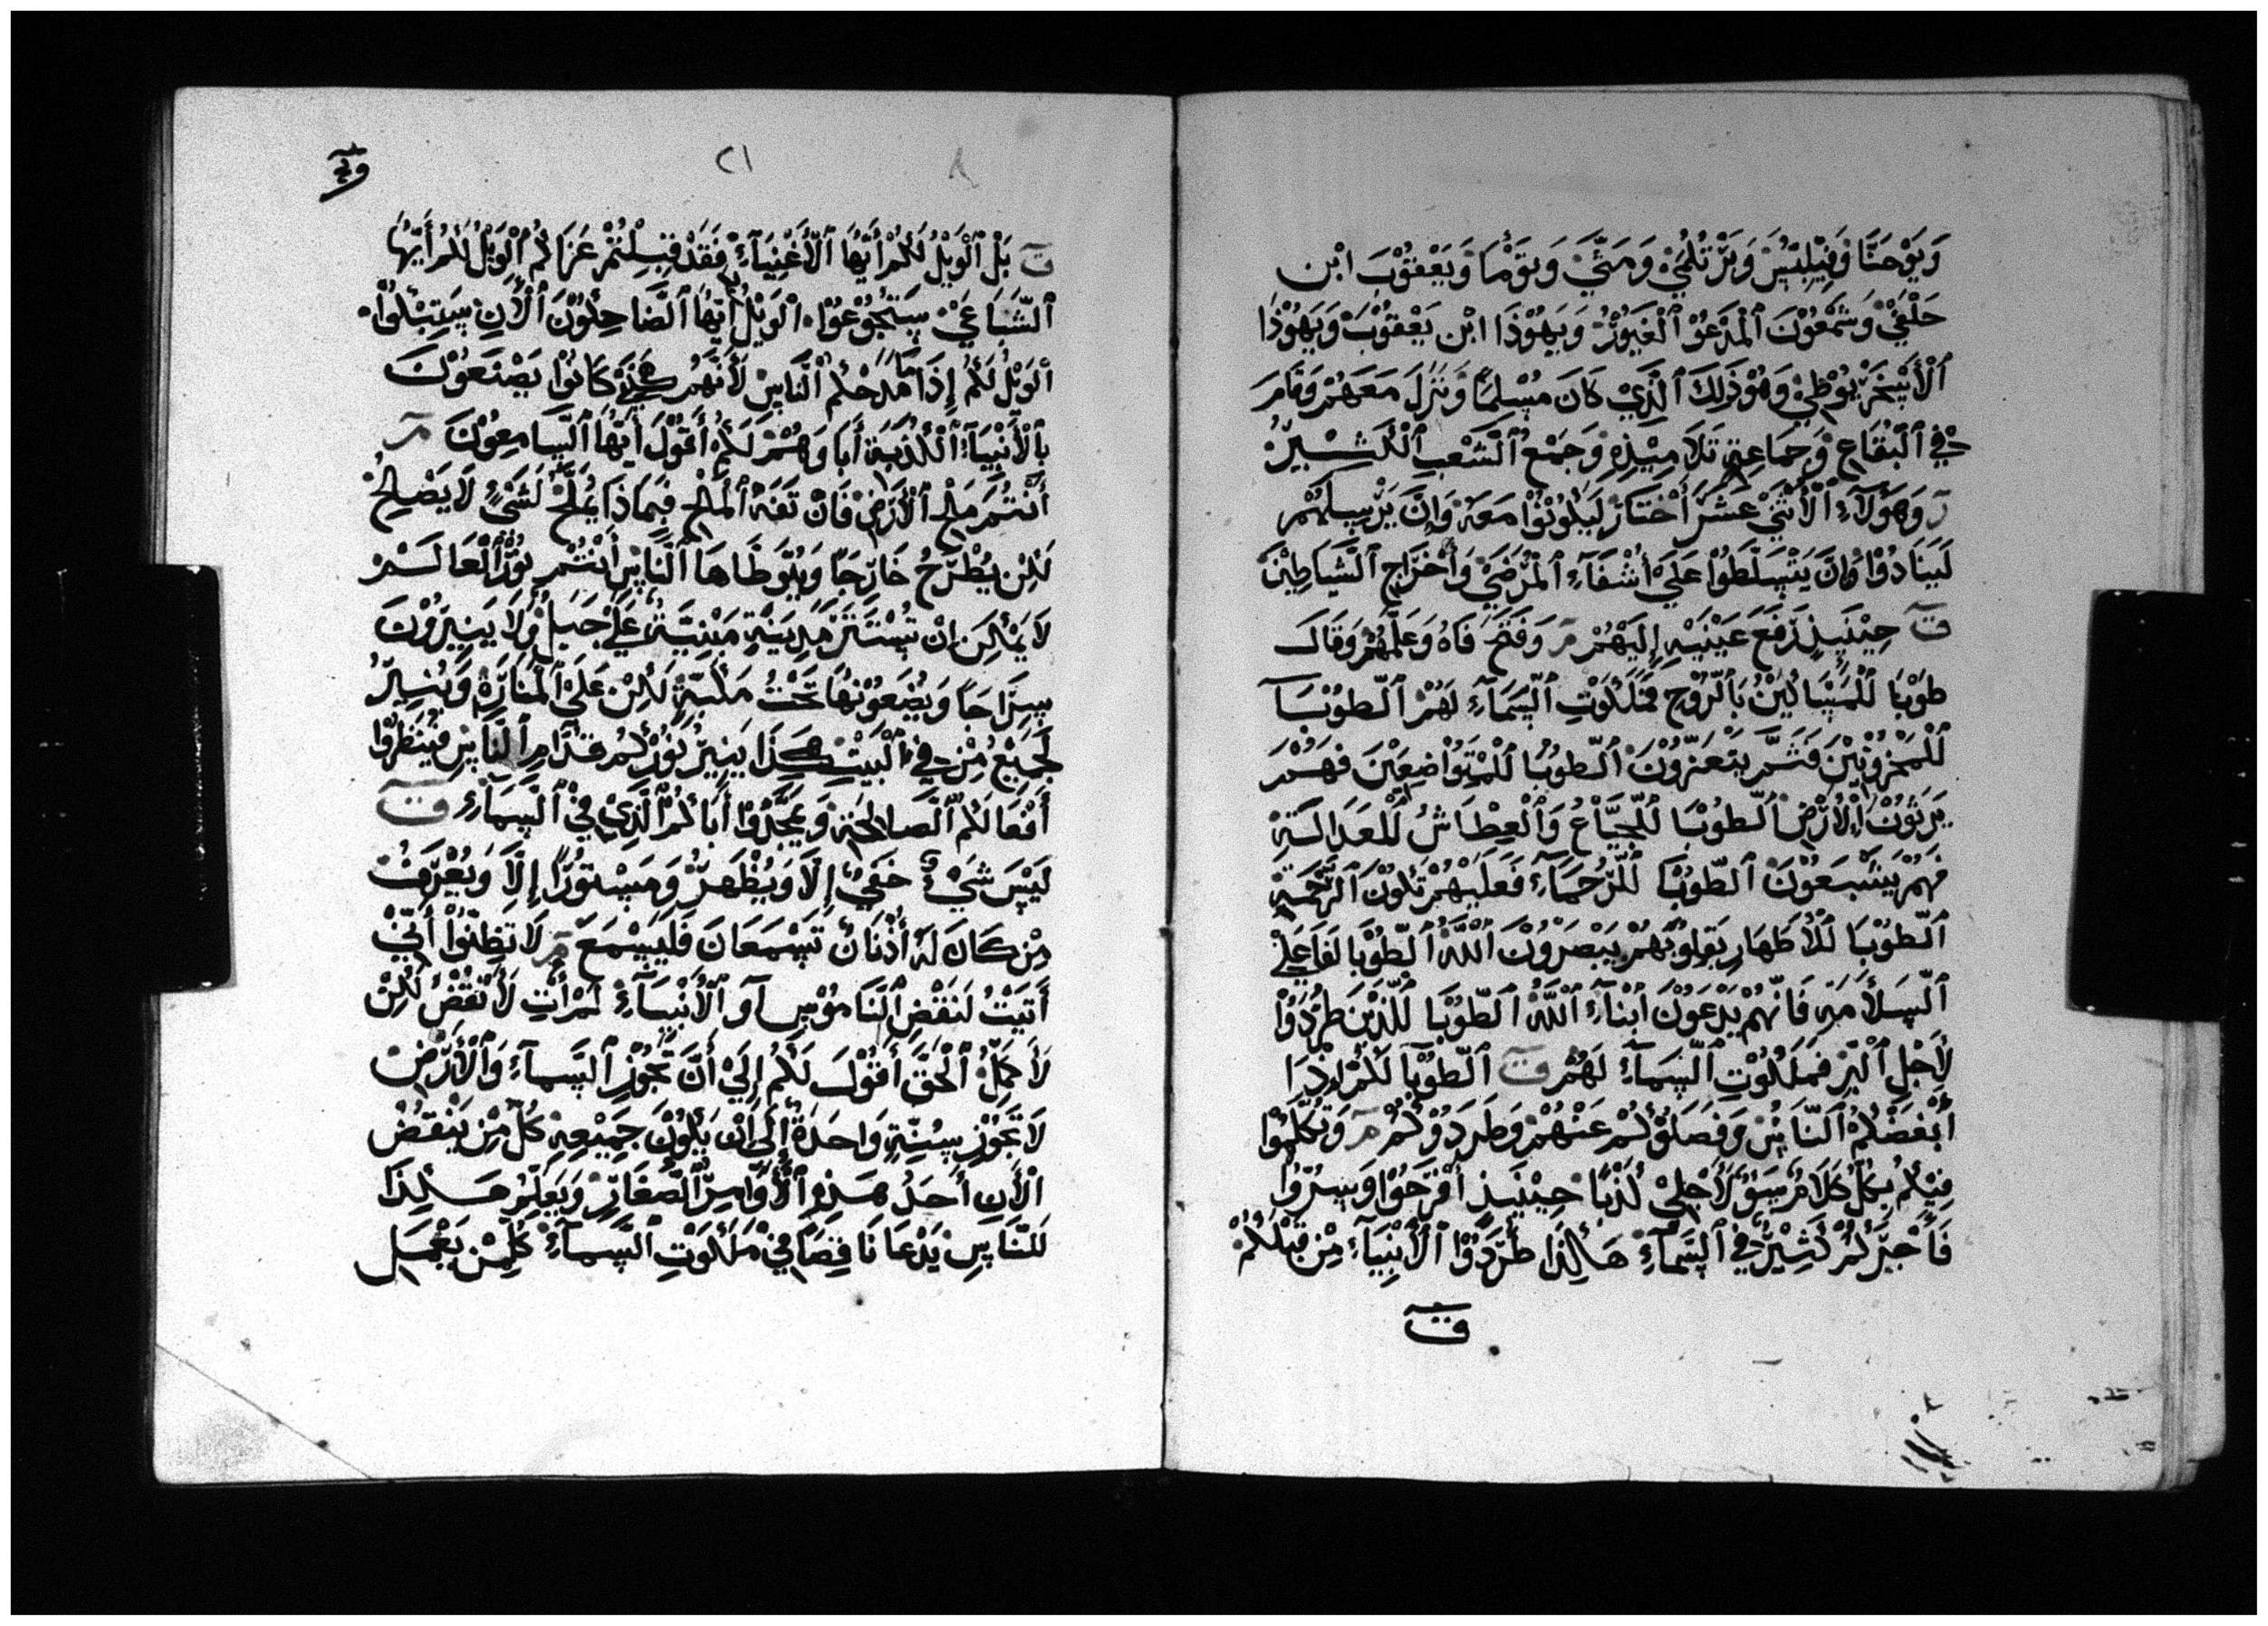 وَيَوْحَنَّا وَفِيْلِبُّسَ وَبَرْتُلْمَيْ وَمَتَّيَ وَتَوْمَا وَيَعْقوْبَ ابْن
حَلْفَيْ وَشَمْعُوْنَ الْمَدْعَوْ الْغَيُوْرُ وَيَهُوْذَا ابْن يَعْقوْبَ وَيَهُوْذَا
الْأَسْخَرْيُوْطِيْ وَهُوَ ذَلِكَ الَّذِيْ كَانَ مُسْلِمًا وَنَزَلَ مَعَهُمْ وَقَامَ
فِيْ الْبُقَاعِ وَجَمَاعِةِ تَلَامِيْذِهِ وَجَمْعُ الْشَعْبِ الْكَثِيْرُ
رَ وَهَؤُلَآءِ الْأَثْنَيْ عَشَرَ أَخْتَارَ لَيَكُوْنُوْا مَعَهُ وَإِنَّ يَرْسِلهُمْ
لَيَنَادُوْا وَانَّ يَتْسَلَّطُوْا عَلَيْ أَشْفَآءِ الْمَرْضَيْ وَأَخْرَاجِ الْشَيَاطِيْنَ
تَ حِيْنَيِذٍ رَفَعَ عَيْنَيْهِ إِلَيْهُمْ مَ وَفَتَحَ فَاهُ وَعَلَّمَهُمْ وَقَالَ
طوْبَا لَلْمَسَاكِيْنُ بَالْرُوْحِ فَمَلَكُوْتِ الْسَمَآءِ لَهُمْ الْطوْبَا
لَلْمَحْزوْنِيْنَ فَثَمَّ يَتَعَزَّوْنَ الْطوْبَا لَلْمَتَوَاضِعِيْنَ فَهُمْ
يَرِثوْنَ الْأَرْضَ الْطوْبَا لَلْجَيَّاعُ وَالْعِطَاشُ لَلْعَدَالَةِ
فَهُمْ يَشْبَعَوْنَ الْطوْبَا لَلْرُحَمَآءِ فَعَلَيْهُمْ تَكوْنَ الْرَحْمَةِ
الْطوْبَا لَلْأَطهَارِ بَقِلوْبَهُمْ يَبْصَرَوْنَ اللَّهَ الْطوْبَا لَفَاعَلِيْ
الْسَلَامَهِ فَانَّهُمْ يَدْعَوْنَ ابْنَآءُ اللَّهُ الْطوْبَا لَلَّذِيْنَ طُرِدُوْا
لَأَجْلِ الْبِرِّ فَمَلَكُوْتِ الْسَمَآءِ لَهُمْ تَ الْطوْبَا لَكُمْ إِذَا
أَبْغَضْكُمُ الْنَّاسُ وَفَصَلَوْكُمْ عَنْهُمْ وَطَرَدَوْكُمْ مَ وَتَكَلَّمْوْا
فِيْكُمْ بِكُلِّ كَلَامِ سَوْءٍ لَأَجْلِيْ كَذْبًا حِيْنَيِذٍ أَفْرَحَوْا وَسِرُّوْا
فَأَجْرَكُمْ كَثِيْرٌ فِيْ الْسَمَآءِ هَاكِذَا طَرَدَوْا الْأَنْبِيَآءَ مِنْ قَبْلَكُمْ
تَ
٢١
٨
تَ بَلْ الْوَيْلُ لَكُمْ أَيُّهَا الْأَغْنِيَآءُ فَقَدْ قَبِلْتُمْ عَزَاكُمْ الْوَيْلُ لَكُمْ أَيُّهَا
الْشَبَاعَيْ سَتَجُوْعُوْا الْوَيْلُ أَيُّهَا الْضَاحِكُوْنَ الْأَنِ سَتَبْكُوْا
الْوَيْلُ لَكُمْ إِذَا مَا مَدَحْكُم الْنَّاسِ لَأَنَّهُمْ كَذَيْ كَانُوْا يَصْنَعَوْنَ
بِالْأَنْبِيَآءِ الْكَذَبَةِ أَبَاوَهُمْ لَكُمْ أَقُوْلَ أَيُّهَا الْسَامِعوْنَ مَ
أَنْتُمْ مَلْحِ الْأَرْضِ فَانْ تَفَهَ الْمَلْحِ فَبَمَاذَا يُمَلَّحُ لَشَيْءٍ لَا يَصْلِحُ
لَكِنْ يُطْرَحُ خَارْجَاً وَيَتَوَطَاهَا الْنَّاسِ أَنْتُمْ نُوْرُ الْعَالَمْ
لَا يَمْكِنَ انْ تُسْتَتَرَ مَدِيْنَةٍ مَبْنِيَّةُ عَلَيْ جَبَلٍ وَلَا يَنِيْرَوْنَ
سِرَاجَاً وَيُضَعَوْنهَا تَحْتُ مَكْيَةً لَكِنْ عَلَيْ الْمَنَارَةِ وَيُنِيْرُ
لَجَمِيْعُ مِنْ فِيْ الْبَيْتِ كَذَا يَنِيْرُ نُوْرُكُمْ قدَّامِ الْنَّاسِ فَيَنْظَرُوْا
أَفْعَالَكُمْ الْصَالَحَةِ وَيَمَجِّدُوْا أَبَاكُمْ الَّذِيْ فِيْ الْسَمَآءِ تَ
لَيْسَ شَيْءٌ خَفِيٌ إِلَّا وَيُظْهَرُ وَمَسْتوْرًا إِلَّا وَيُعْرَفْ
مِنْ كَانَ لَهُ أُذْنَانِ تَسْمَعَانَ فَلَيَسْمَعَ مَ لَا تَظِنُّوْا أَنِّيْ
أَتَيْتُ لَنَقْضِ الْنَّامُوْسِ أَوَ الْأَنْبِيَآءِ لَمْ أَتِ لَأَنْقُضُ لَكِنْ
لَأَكَمِّلُ الْحَقَّ أَقُوْلَ لَكُمْ إِلَيْ أَنَّ تَجُوْزِ الْسَمَآءِ وَالْأَرْضِ
لَا تَجَوْزِ سِنِّةٍ وَاحَدَةً إِلَى انْ يَكُوْنَ جَمِيْعِهِ كُلِّ مِنْ يَنْقضُ
الْأَنِ أَحَدُ هَذِهِ الْأَوَامِرِ الْصَغَارِ وَيَعَلِّمُ هَكِذَا
لَلنَّاسِ يَدْعَا نَاقِصَاً فِيْ مَلَكُوْتِ الْسَمَآءِ كُلِّمْن يَعْمَل